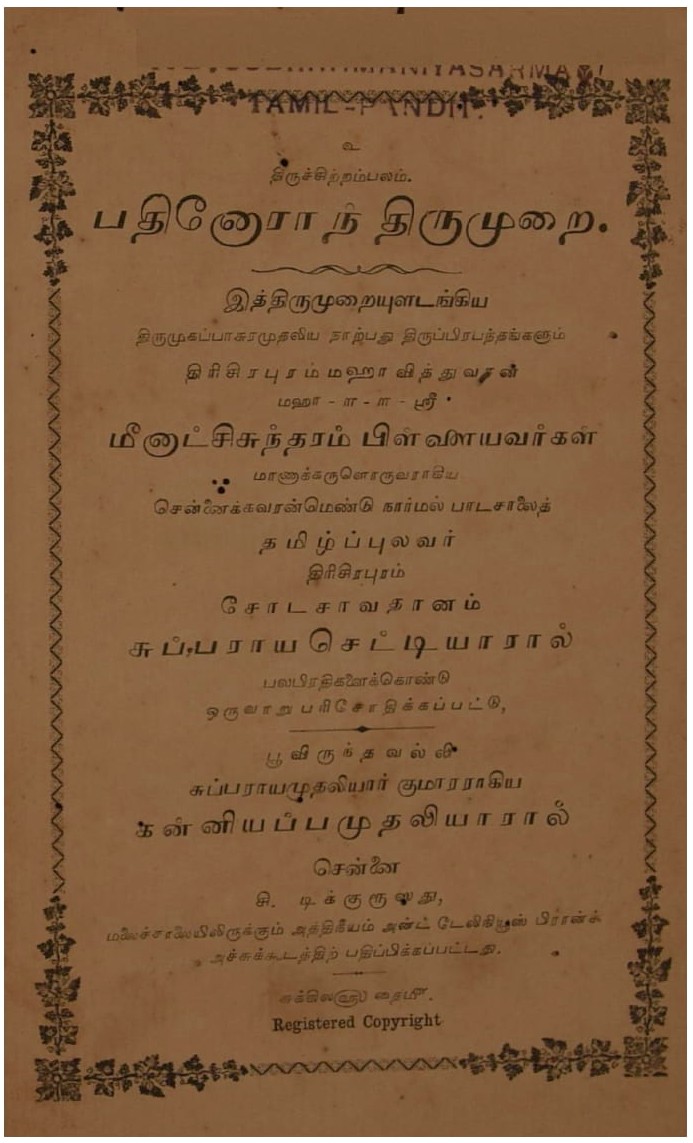 TAMIL-PANDIT.
உ
திருச்சிற்றம்பலம்.
பதினோராந் திருமுறை.
இத்திருமுறையுளடங்கிய
திருமுகப்பாசுரமுதலிய நாற்பது திருப்பிரபந்தங்களும்
திரிசிரபுரம் மஹாவித்துவான்
மஹா-ா-ா-ஸ்ரீ
மீனாட்சிசுந்தரம் பிள்ளையவர்கள்
மாணாக்கருளொருவராகிய
சென்னைக்கவரன்மெண்டு நார்மல் பாடசாலைத்
தமிழ்ப்புலவர்
திரிசிரபுரம்
சோடசாவதானம்
சுப்பராயசெட்டியாரால்
பலபிரதிகளைக்கொண்டு
ஒருவாறு பரிசோதிக்கப்பட்டு,
பூவிருந்தவல்லி
சுப்பராயமுதலியார் குமாரராகிய
கன்னியப்பமுதலியாரால்
சென்னை
சி. டிக்குருஸது,
மலைச்சாலையிலிருக்கும் அத்திகீயம் அன்ட் டேலிகியூஸ் பிரான்ச்
அச்சுக்கூடத்திற் பதிப்பிக்கப்பட்டது.
Registered Copyright